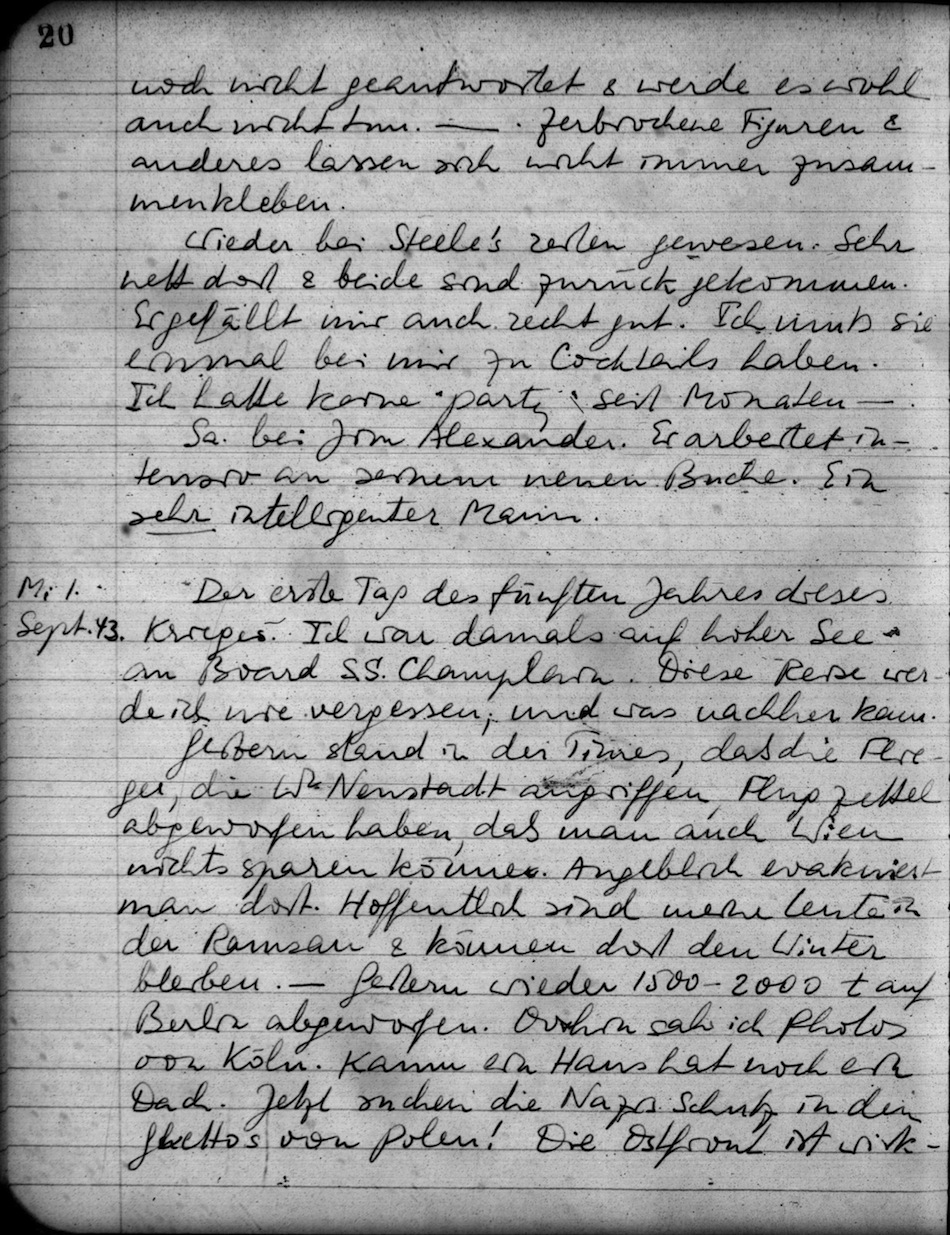 20
noch nicht geantwortet & werde es wohl
auch nicht tun. — . Zerbrochene Figuren &
anderes lassen sich nicht immer zusam-
menkleben.
Wieder bei Steele's gewesen. Sehr
nett dort & beide sind zurückgekommen.
Er gefällt mir auch recht gut. Ich muß sie
einmal bei mir zu Cocktails haben.
Ich hatte keine "party" seit Monaten — .
Sa. bei Jim Alexander. Er arbeitet in-
tensiv an seinem neuen Buche. Ein
sehr intelligenter Mann.
Mi 1. Der erste Tag des fünften Jahres dieses
Sept. 43. Krieges. Ich war damals auf hoher See
an Board S.S. Champlain. Diese Reise wer-
de ich nie vergessen, und was nachher kam.
Gestern stand in den Times, daß die Flie-
ger, die Wr. Neustadt angriffen, Flugzettel
abgeworfen haben, daß man auch Wien
nichts sparen könne. Angeblich evakuiert
man dort. Hoffentlich sind meine Leute in
der Ramsau & können dort den Winter
bleiben. — Gestern wieder 1500-2000 t auf
Berlin abgeworfen. sah ich Photos
von Köln. Kaum ein Haus hat noch ein
Dach. Jetzt suchen die Nazis Schutz in den
Ghettos von Polen! Die Ostfront ist wirk-